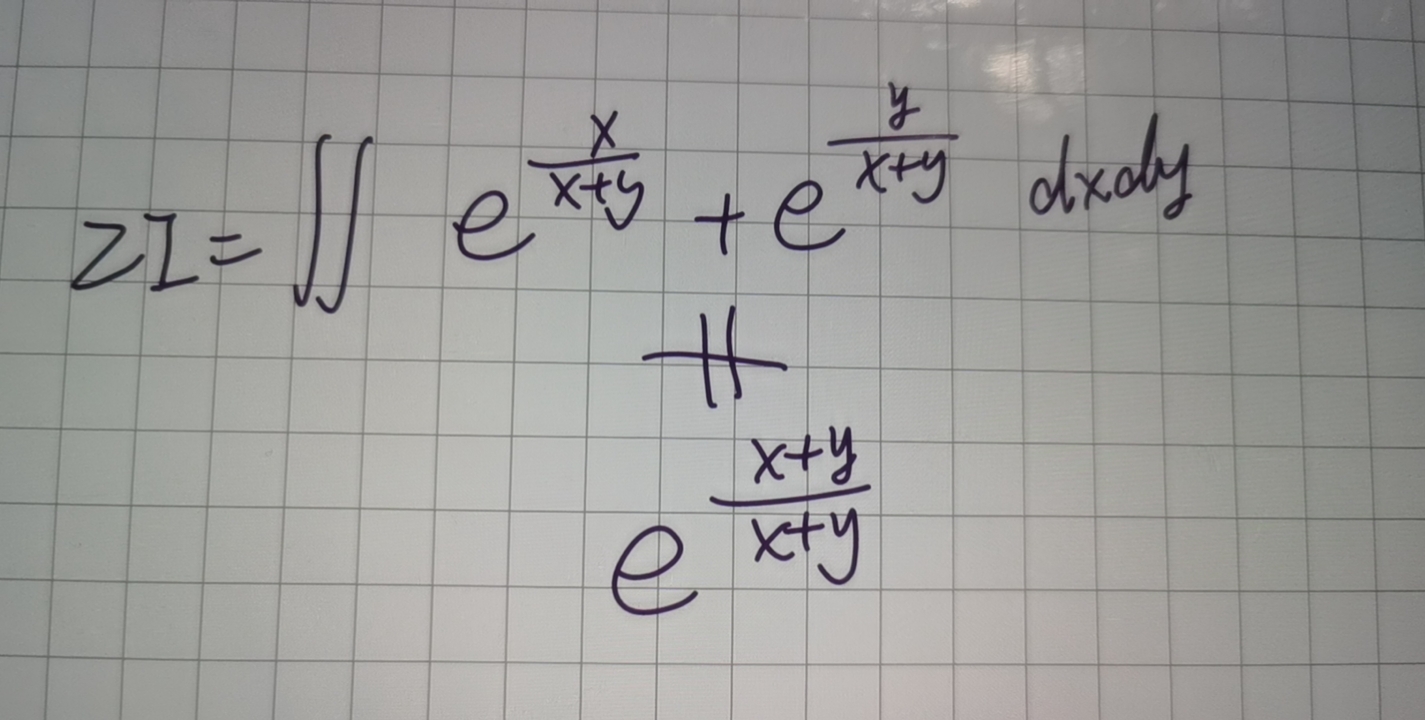 2I = ∬ e^{\frac{x}{x+y}} + e^{\frac{y}{x+y}} dxdy
≠
e^{\frac{x+y}{x+y}}